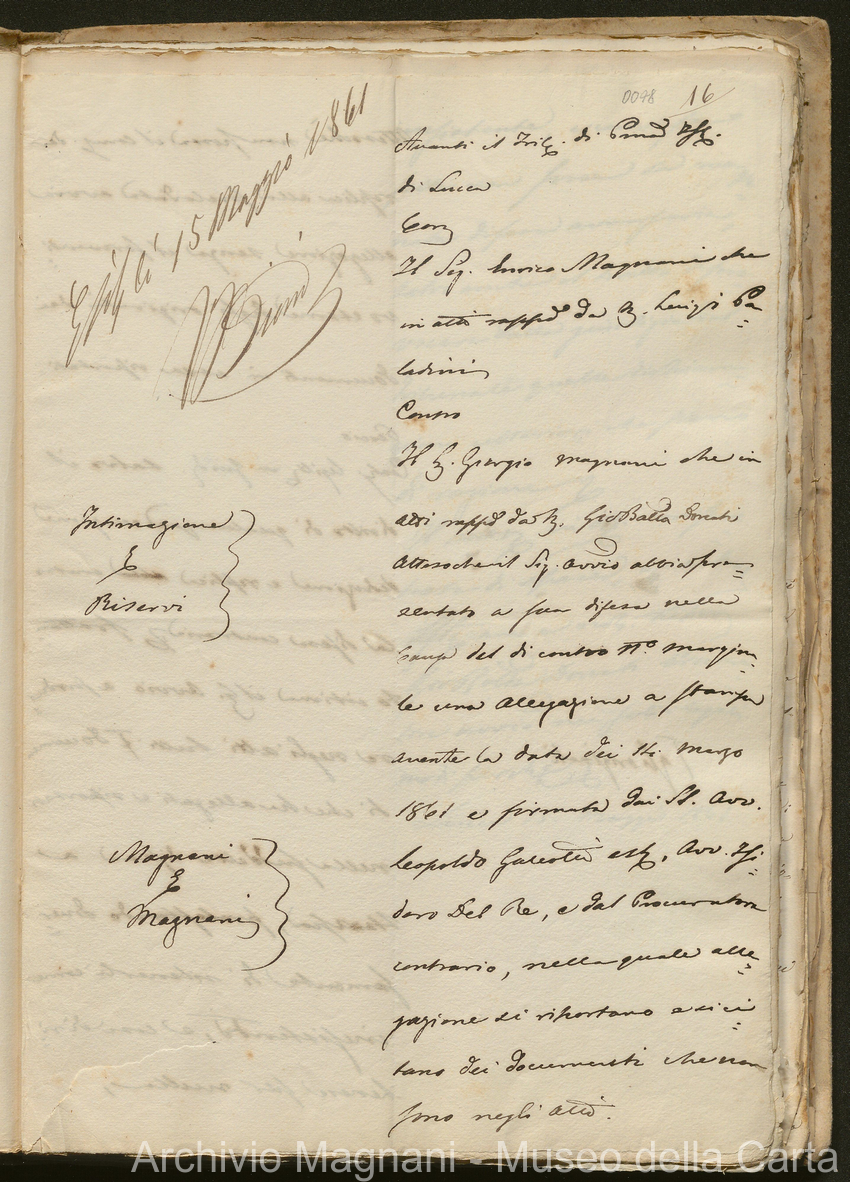 0078 16
li 15 Maggio 1861
Avanti il Trib. di Pma Ist.
di Lucca
Il Sig. Enrico Magnani che
in atti rappto da M. Luigi Pa=
ladini
Contro
Il Sig. Giorgio Magnani che in
atti rappto da M. Gio Batta Donati
Attesoche il Sig. Avvio abbia pre=
sentato a sua difesa nella
Causa del di contro no. margina=
le una Allegazione a stampa
avente la data dei 14 marzo
1861 e firmata dai SS. Avv.
Leopoldo Galeotti Avv. Isi=
doro Del Re, e dal Procuratore
contrario, nella quale alle=
gazione si riportano e si ci=
tano dei documenti che non
sono negli atti.
Intimazione
E
Riservi
Magnani
E
Magnani
Archivio Magnani - Museo della Carta